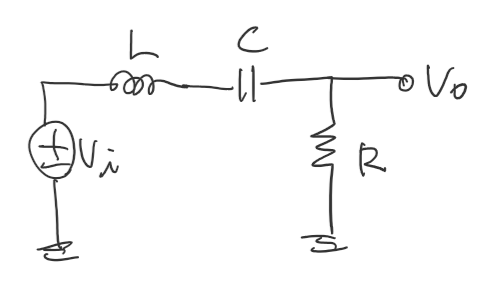 L
C
Vo
+
-
Vi
R